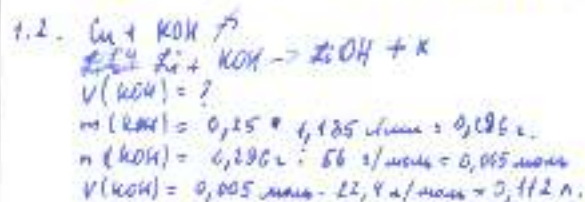 1.2. Cu + KOH ↛
Li + KOH -> LiOH + K
V(KOH) = ?
m(KOH) = 0,25 * 1,185 г/мл = 0,296 г.
n(KOH) = 0,296 г : 56 г/моль = 0,005 моль
V(KOH) = 0,005 моль · 22,4 л/моль = 0,112 л.